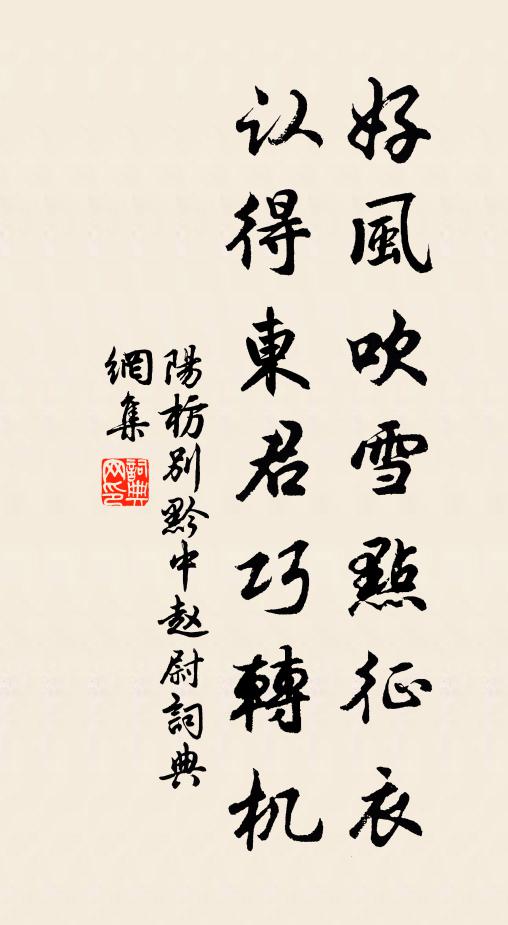 好風吹雪點征衣
认得東君巧轉机
陽枋别黔中赵尉詞典
網集
詞典网印